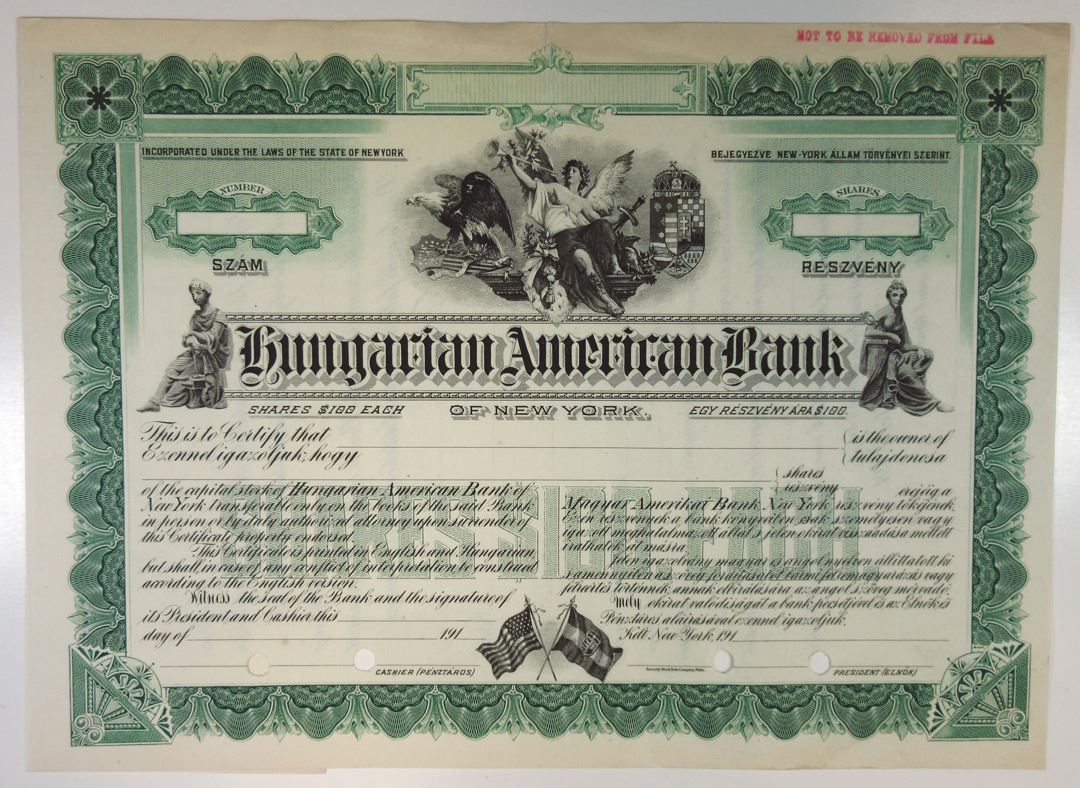 NOT TO BE REMOVED FROM FILE
INCORPORATED UNDER THE LAWS OF THE STATE OF NEW YORK
BEJEGYEZVE NEW-YORK ÁLLAM TÖRVÉNYEI SZERINT.
NUMBER
SHARES
SZÁM
RÉSZVÉNY
Hungarian American Bank
SHARES $100 EACH
OF NEW YORK.
EGY RÉSZVÉNY ÁRA $100.
This is to Certify that
is the owner of
Ezennel igazoljuk, hogy
tulajdonosa
shares
részvény
erejéig a
of the capital stock of Hungarian American Bank of
New York transferable only on the books of the said Bank
in person or by duly authorized attorney upon surrender of
this Certificate properly endorsed.
This Certificate is printed in English and Hungarian,
but shall in case of any conflict of interpretation be construed
according to the English version.
Witness the seal of the Bank and the signature of
its President and Cashier this
day of 191
Magyar Amerikai Bank, New York részvény tőkéjének.
Ezen részvények a bank könyveiben csak személyesen vagy
igazolt meghatalmazott által s jelen okirat visszaadása mellett
irathatók át másra.
Jelen igazolvány magyar és angol nyelven állíttatott ki
amennyiben a szöveg fordításától bármi félremagyarázás vagy
történnék, annak elbírálására, az angol szöveg mérvadó.
Mely okirat valódiságát a bank pecsétjével és az Elnök és
Pénztáros aláírásával ezennel igazoljuk.
Kelt, New York, 191
SHARES $100 EACH
CASHIER (PÉNZTÁROS)
Security Bank Note Company, Phila.
PRESIDENT (ELNÖK)